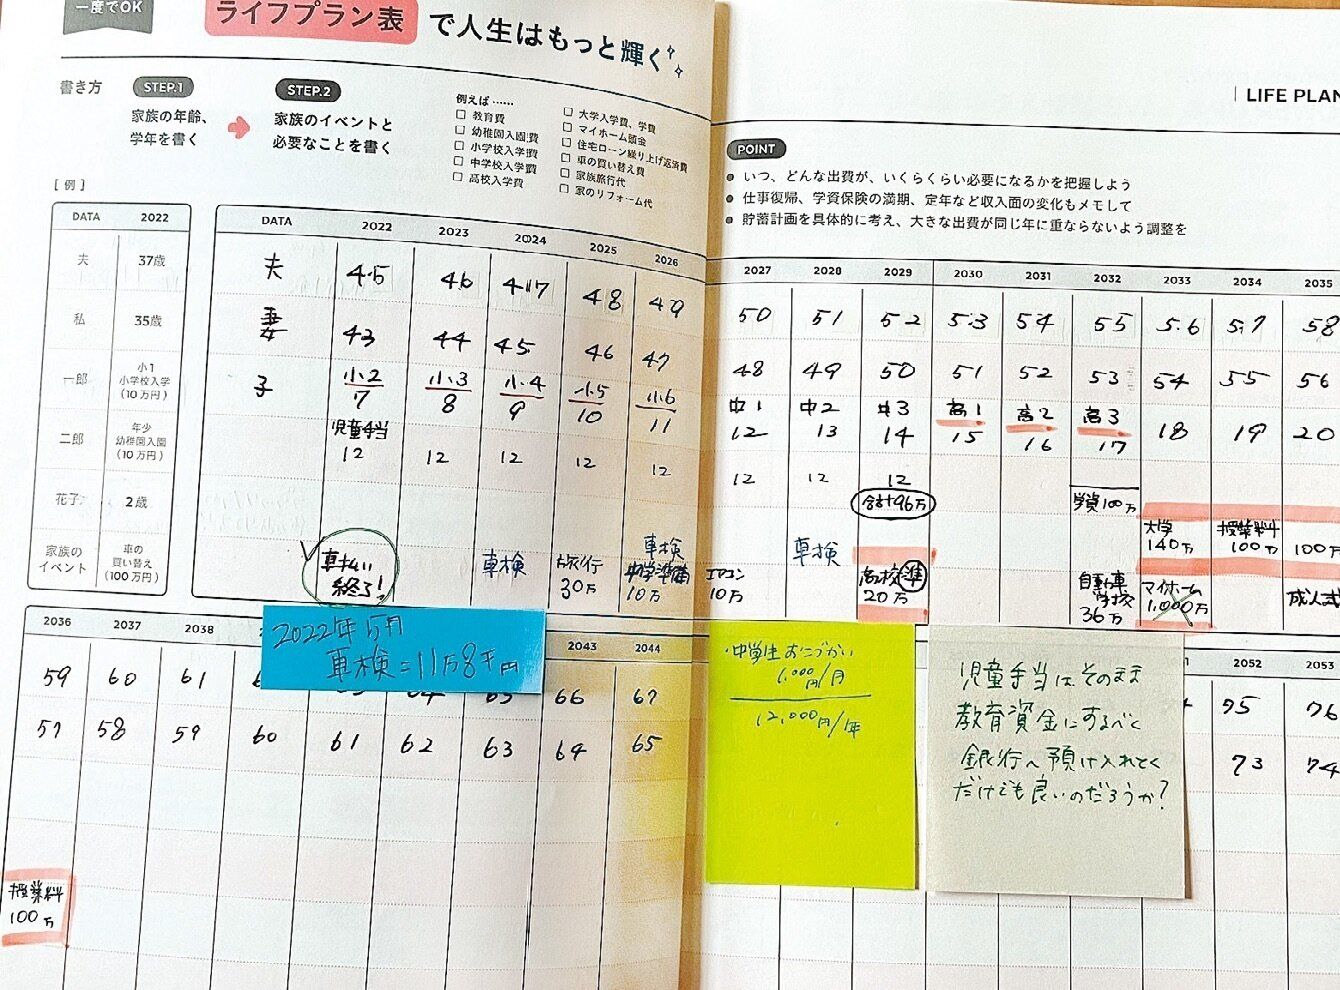 一度でOK
ライフプラン表で人生はもっと輝く
書き方
STEP.1
家族の年齢、
学年を書く
STEP.2
家族のイベントと
必要なことを書く
例えば……
□ 教育費
□ 幼稚園入園費
□ 小学校入学費
□ 中学校入学費
□ 高校入学費
□ 大学入学費、学費
□ マイホーム頭金
□ 住宅ローン繰り上げ返済費
□ 車の買い替え費
□ 家族旅行代
□ 家のリフォーム代
LIFE PLAN
POINT
● いつ、どんな出費が、いくらくらい必要になるかを把握しよう
● 仕事復帰、学資保険の満期、定年など収入面の変化もメモして
● 貯蓄計画を具体的に考え、大きな出費が同じ年に重ならないよう調整を
[ 例 ]
DATA 2022
夫 37歳
私 35歳
一郎 小1
小学校入学
(10万円)
二郎 年少
幼稚園入園
(10万円)
花子 2歳
家族の
イベント
車の
買い替え
(100万円)
DATA 2022 2023 2024 2025 2026 2027 2028 2029 2030 2031 2032 2033 2034 2035
夫 45 46 47 48 49 50 51 52 53 54 55 56 57 58
妻 43 44 45 46 47 48 49 50 51 52 53 54 55 56
子 小2 小3 小4 小5 小6 中1 中2 中3 高1 高2 高3
7 8 9 10 11 12 13 14 15 16 17 18 19 20
児童手当
12 12 12 12 12 12 12 12
合計96万
学資100万
大学
140万
授業料
100万
100万
車払い
終了!
車検
旅行
30万
車検
中学準備
10万
エアコン
10万
車検
高校準
20万
自動車
学校
36万
マイホーム
1,000万
成人式
2036 2037 2038 2043 2044 2052 2053
59 60 61 66 67 75 76
57 58 59 60 61 62 63 64 65 73 74
授業料
100万
2022年5月
車検=11万8千円
・中学生おこづかい
1,000円/月
12,000円/年
児童手当はそのまま
教育資金にするべく
銀行へ預け入れとく
だけでも良いのだろうか?